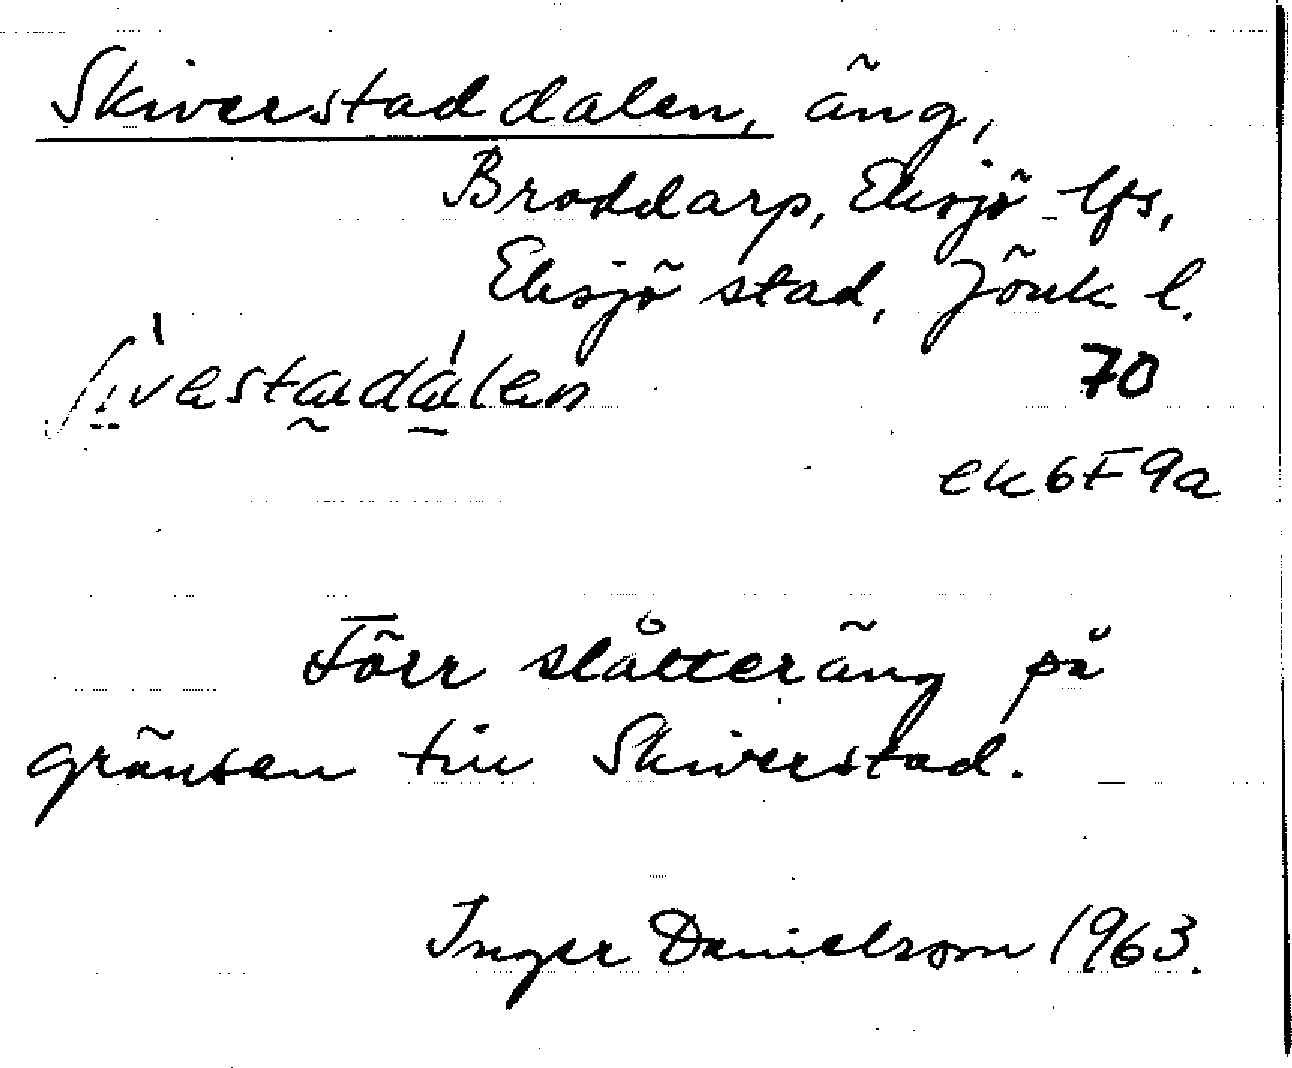 Skiverstaddalen, äng,
Broddarp, Eksjö lfs,
Eksjö stad, Jönk. l.
ʃìvestadálen 70
ek 6F 9a
Förr slåtteräng på
gränsen till Skiverstad.
Inger Danielsson 1963.